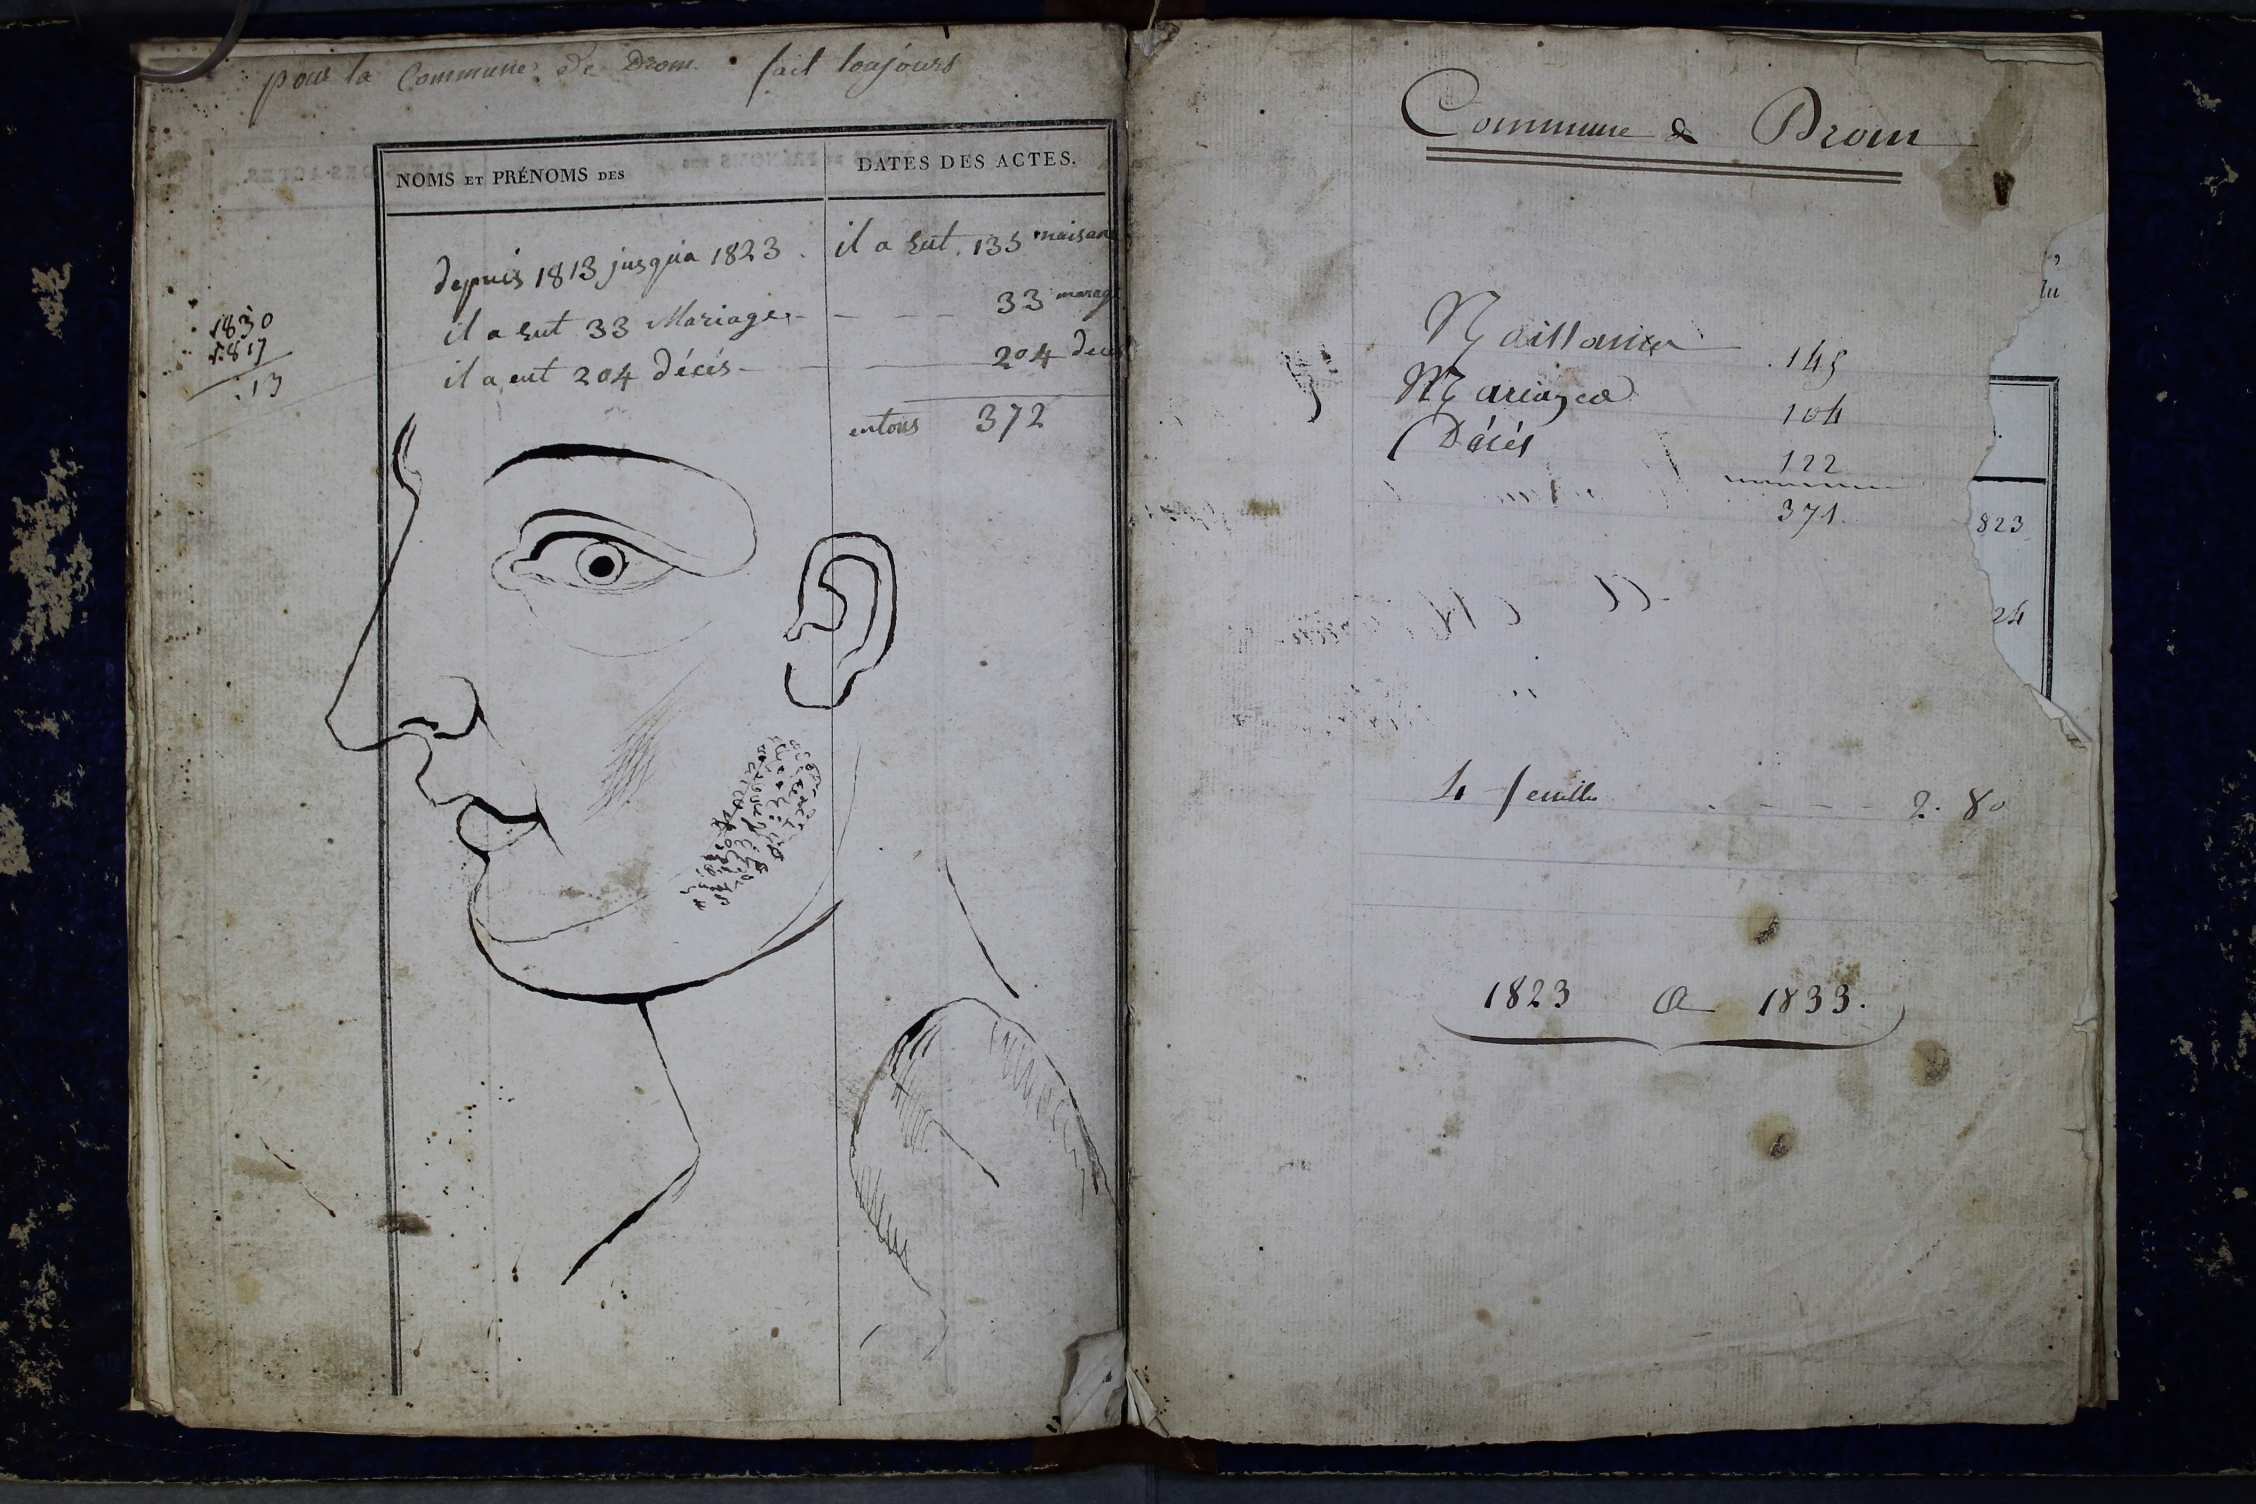 pour la Commune de Drom. fait toujours
NOMS ET PRÉNOMS DES
DATES DES ACTES.
depuis 1813 jusqu'a 1823. il a eut 135 naisan
il a eut 33 Mariage - - - - 33 mariag
il a eut 204 décés - - - 204 deces
entous 372
1830
1817
.13
Commune de Drom
Naissances 145
Mariages 104
Décés 122
371.
823
24
4 feuilles . - - - - 2. 80
1823 a 1833.